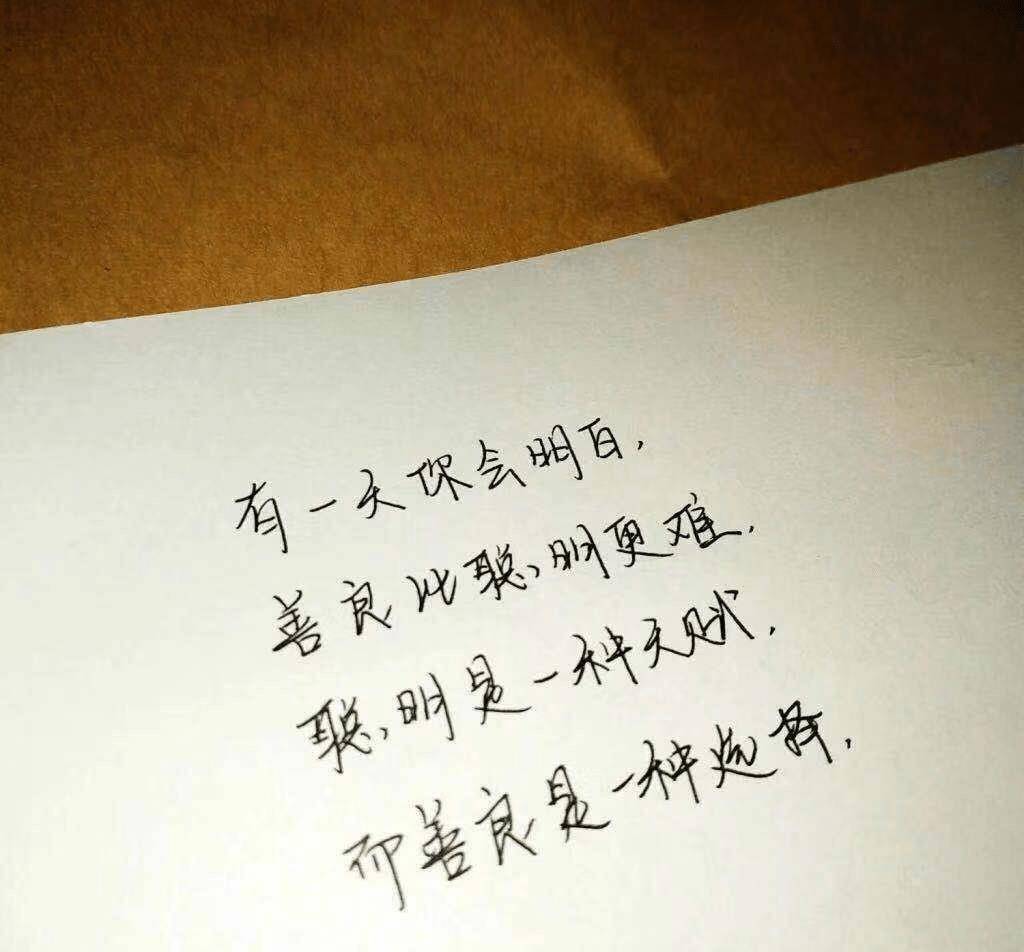 有一天你会明白,
善良比聪明更难.
聪明是一种天赋,
而善良是一种选择,